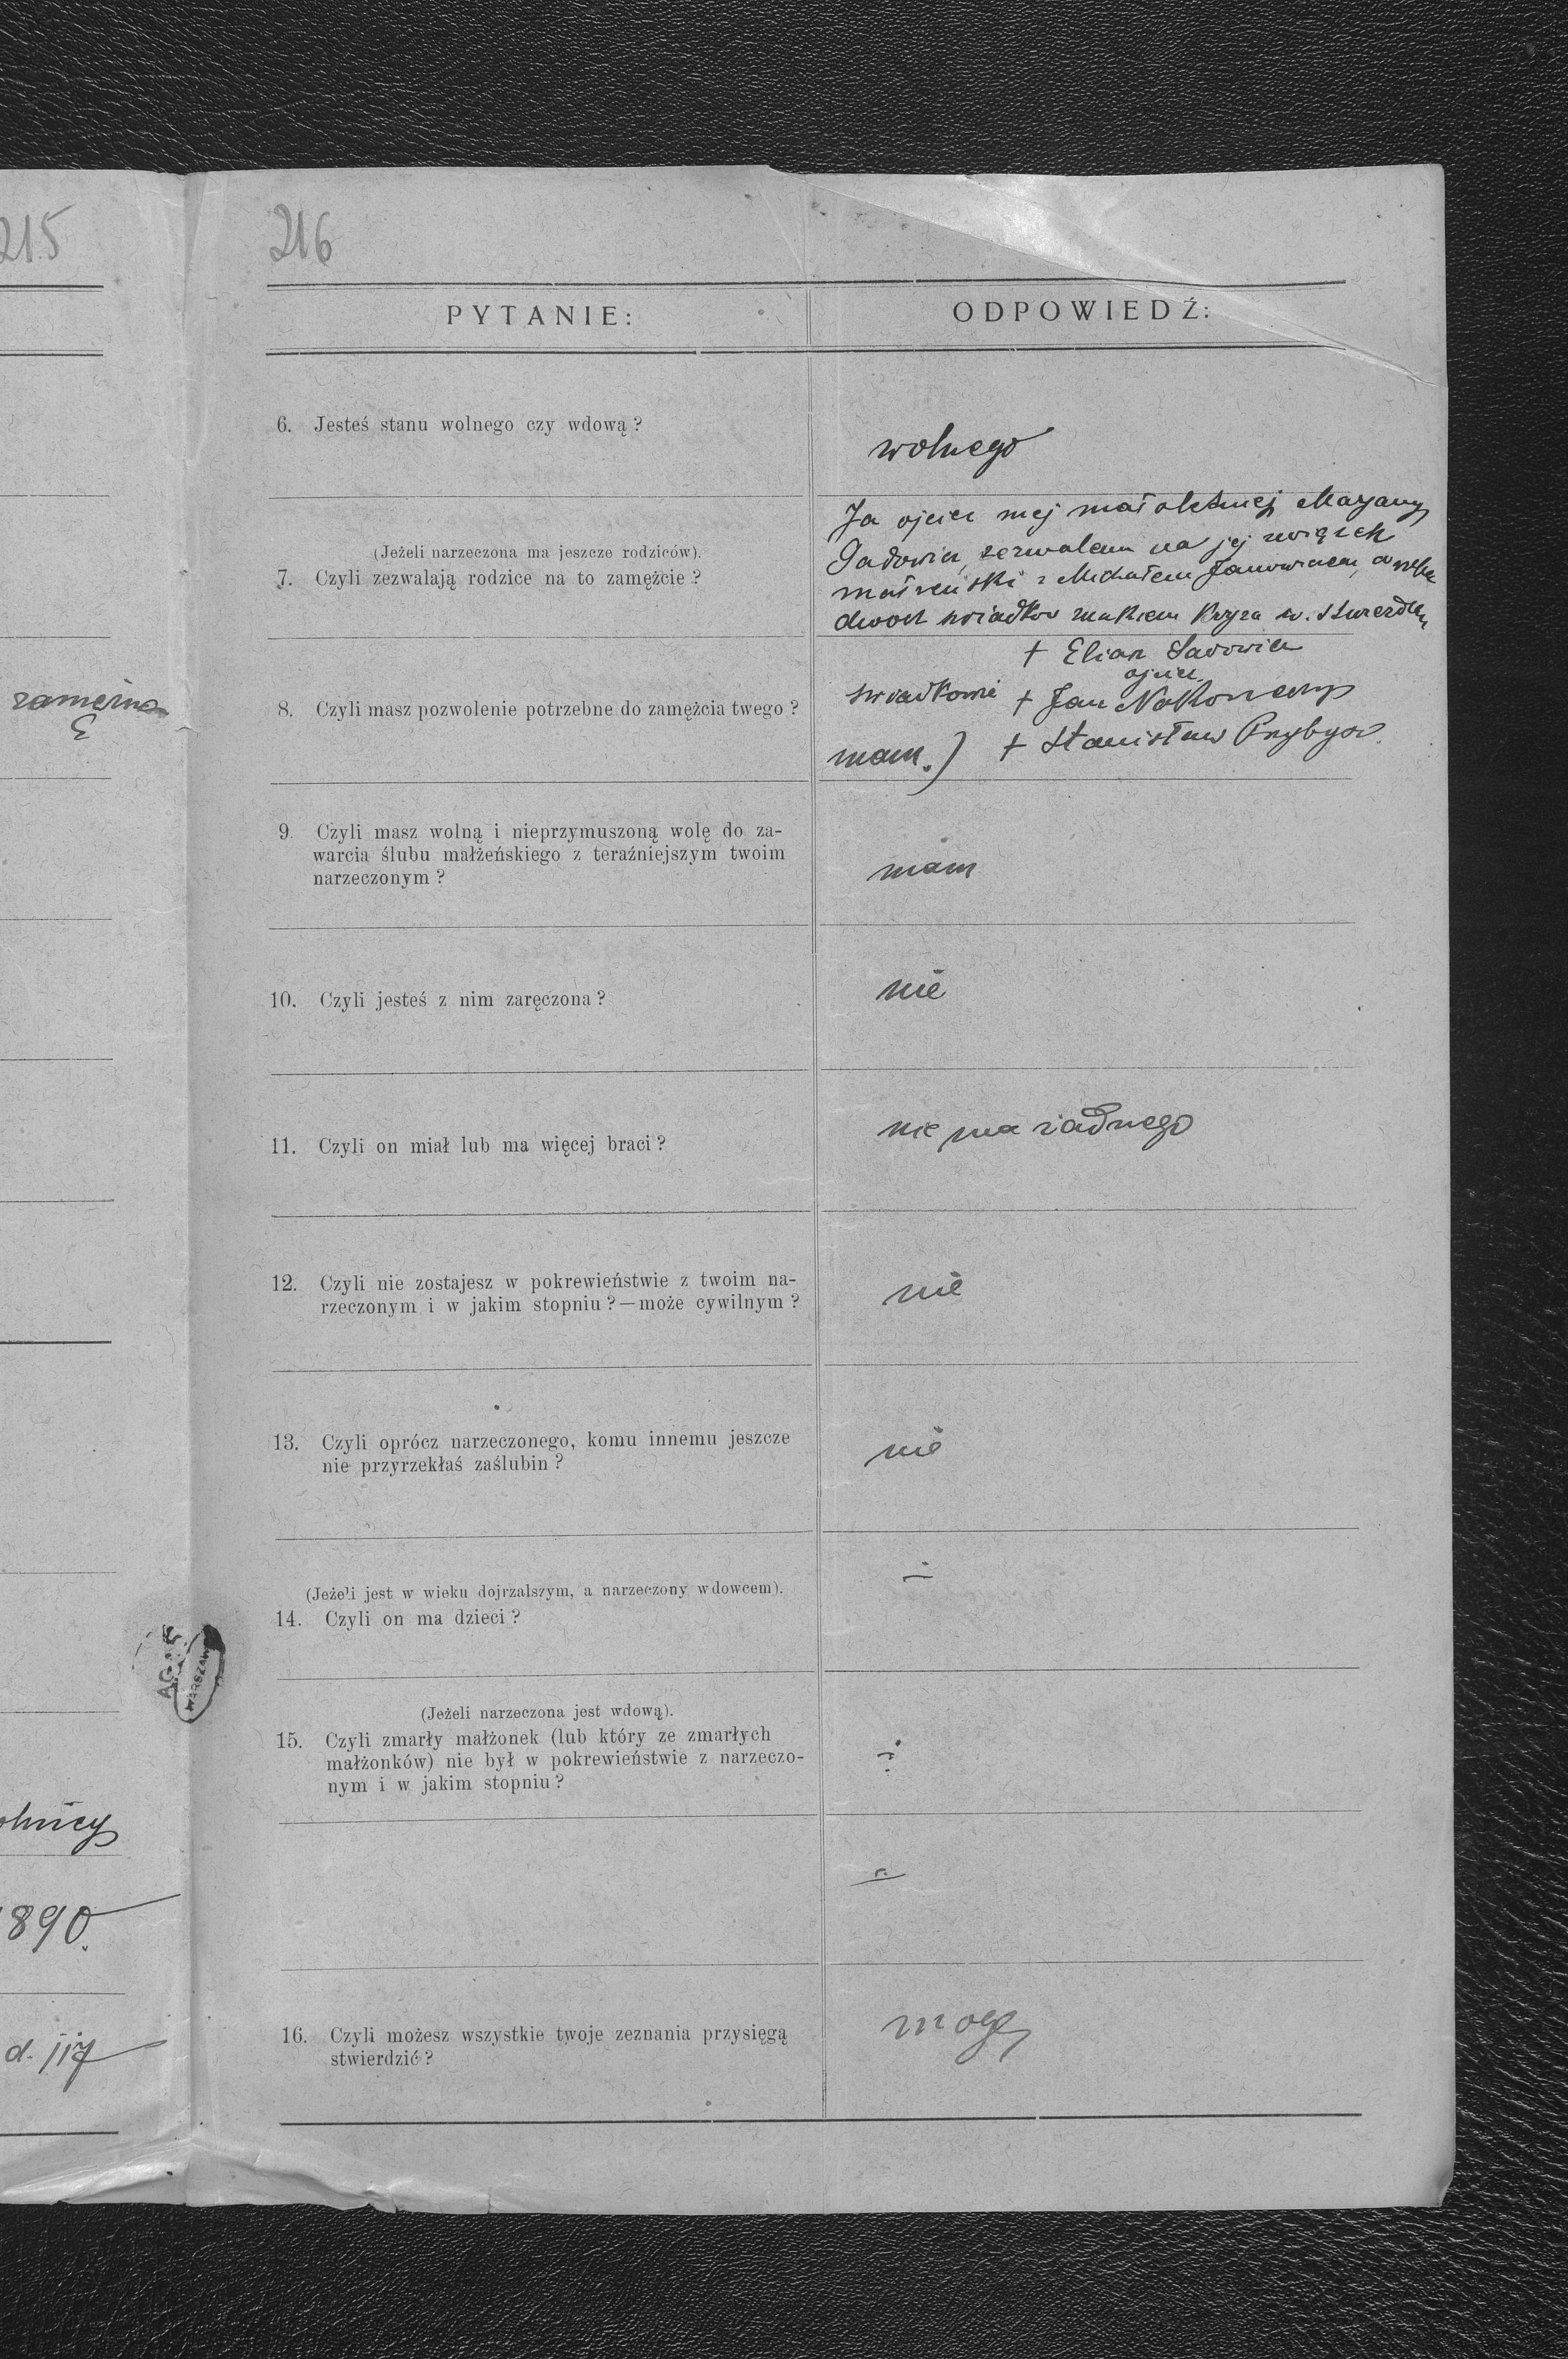 215
216
PYTANIE:
ODPOWIEDŹ:
6. Jesteś stanu wolnego czy wdową?
wolnego
(Jeżeli narzeczona ma jeszcze rodziców).
7. Czyli zezwalają rodzice na to zamężcie?
Ja ojciec mej małoletniej Maryany
zezwalam na jej związek
małżeński z Michałem
dwoch świadków znakiem krzyża św. stwierdzam
+ Eliasz
ojciec
8. Czyli masz pozwolenie potrzebne do zamężcia twego?
świadkowie + Jan Nakoneczny
mam.) + Stanisław
9. Czyli masz wolną i nieprzymuszoną wolę do za-
warcia ślubu małżeńskiego z teraźniejszym twoim
narzeczonym?
mam
10. Czyli jesteś z nim zaręczona?
nie
11. Czyli on miał lub ma więcej braci?
nie ma żadnego
12. Czyli nie zostajesz w pokrewieństwie z twoim na-
rzeczonym i w jakim stopniu?—może cywilnym?
nie
13. Czyli oprócz narzeczonego, komu innemu jeszcze
nie przyrzekłaś zaślubin?
nie
(Jeżeli jest w wieku dojrzalszym, a narzeczony wdowcem).
14. Czyli on ma dzieci?
(Jeżeli narzeczona jest wdową).
15. Czyli zmarły małżonek (lub który ze zmarłych
małżonków) nie był w pokrewieństwie z narzeczo-
nym i w jakim stopniu?
16. Czyli możesz wszystkie twoje zeznania przysięgą
stwierdzić?
mogę
890.
WARSZAWA